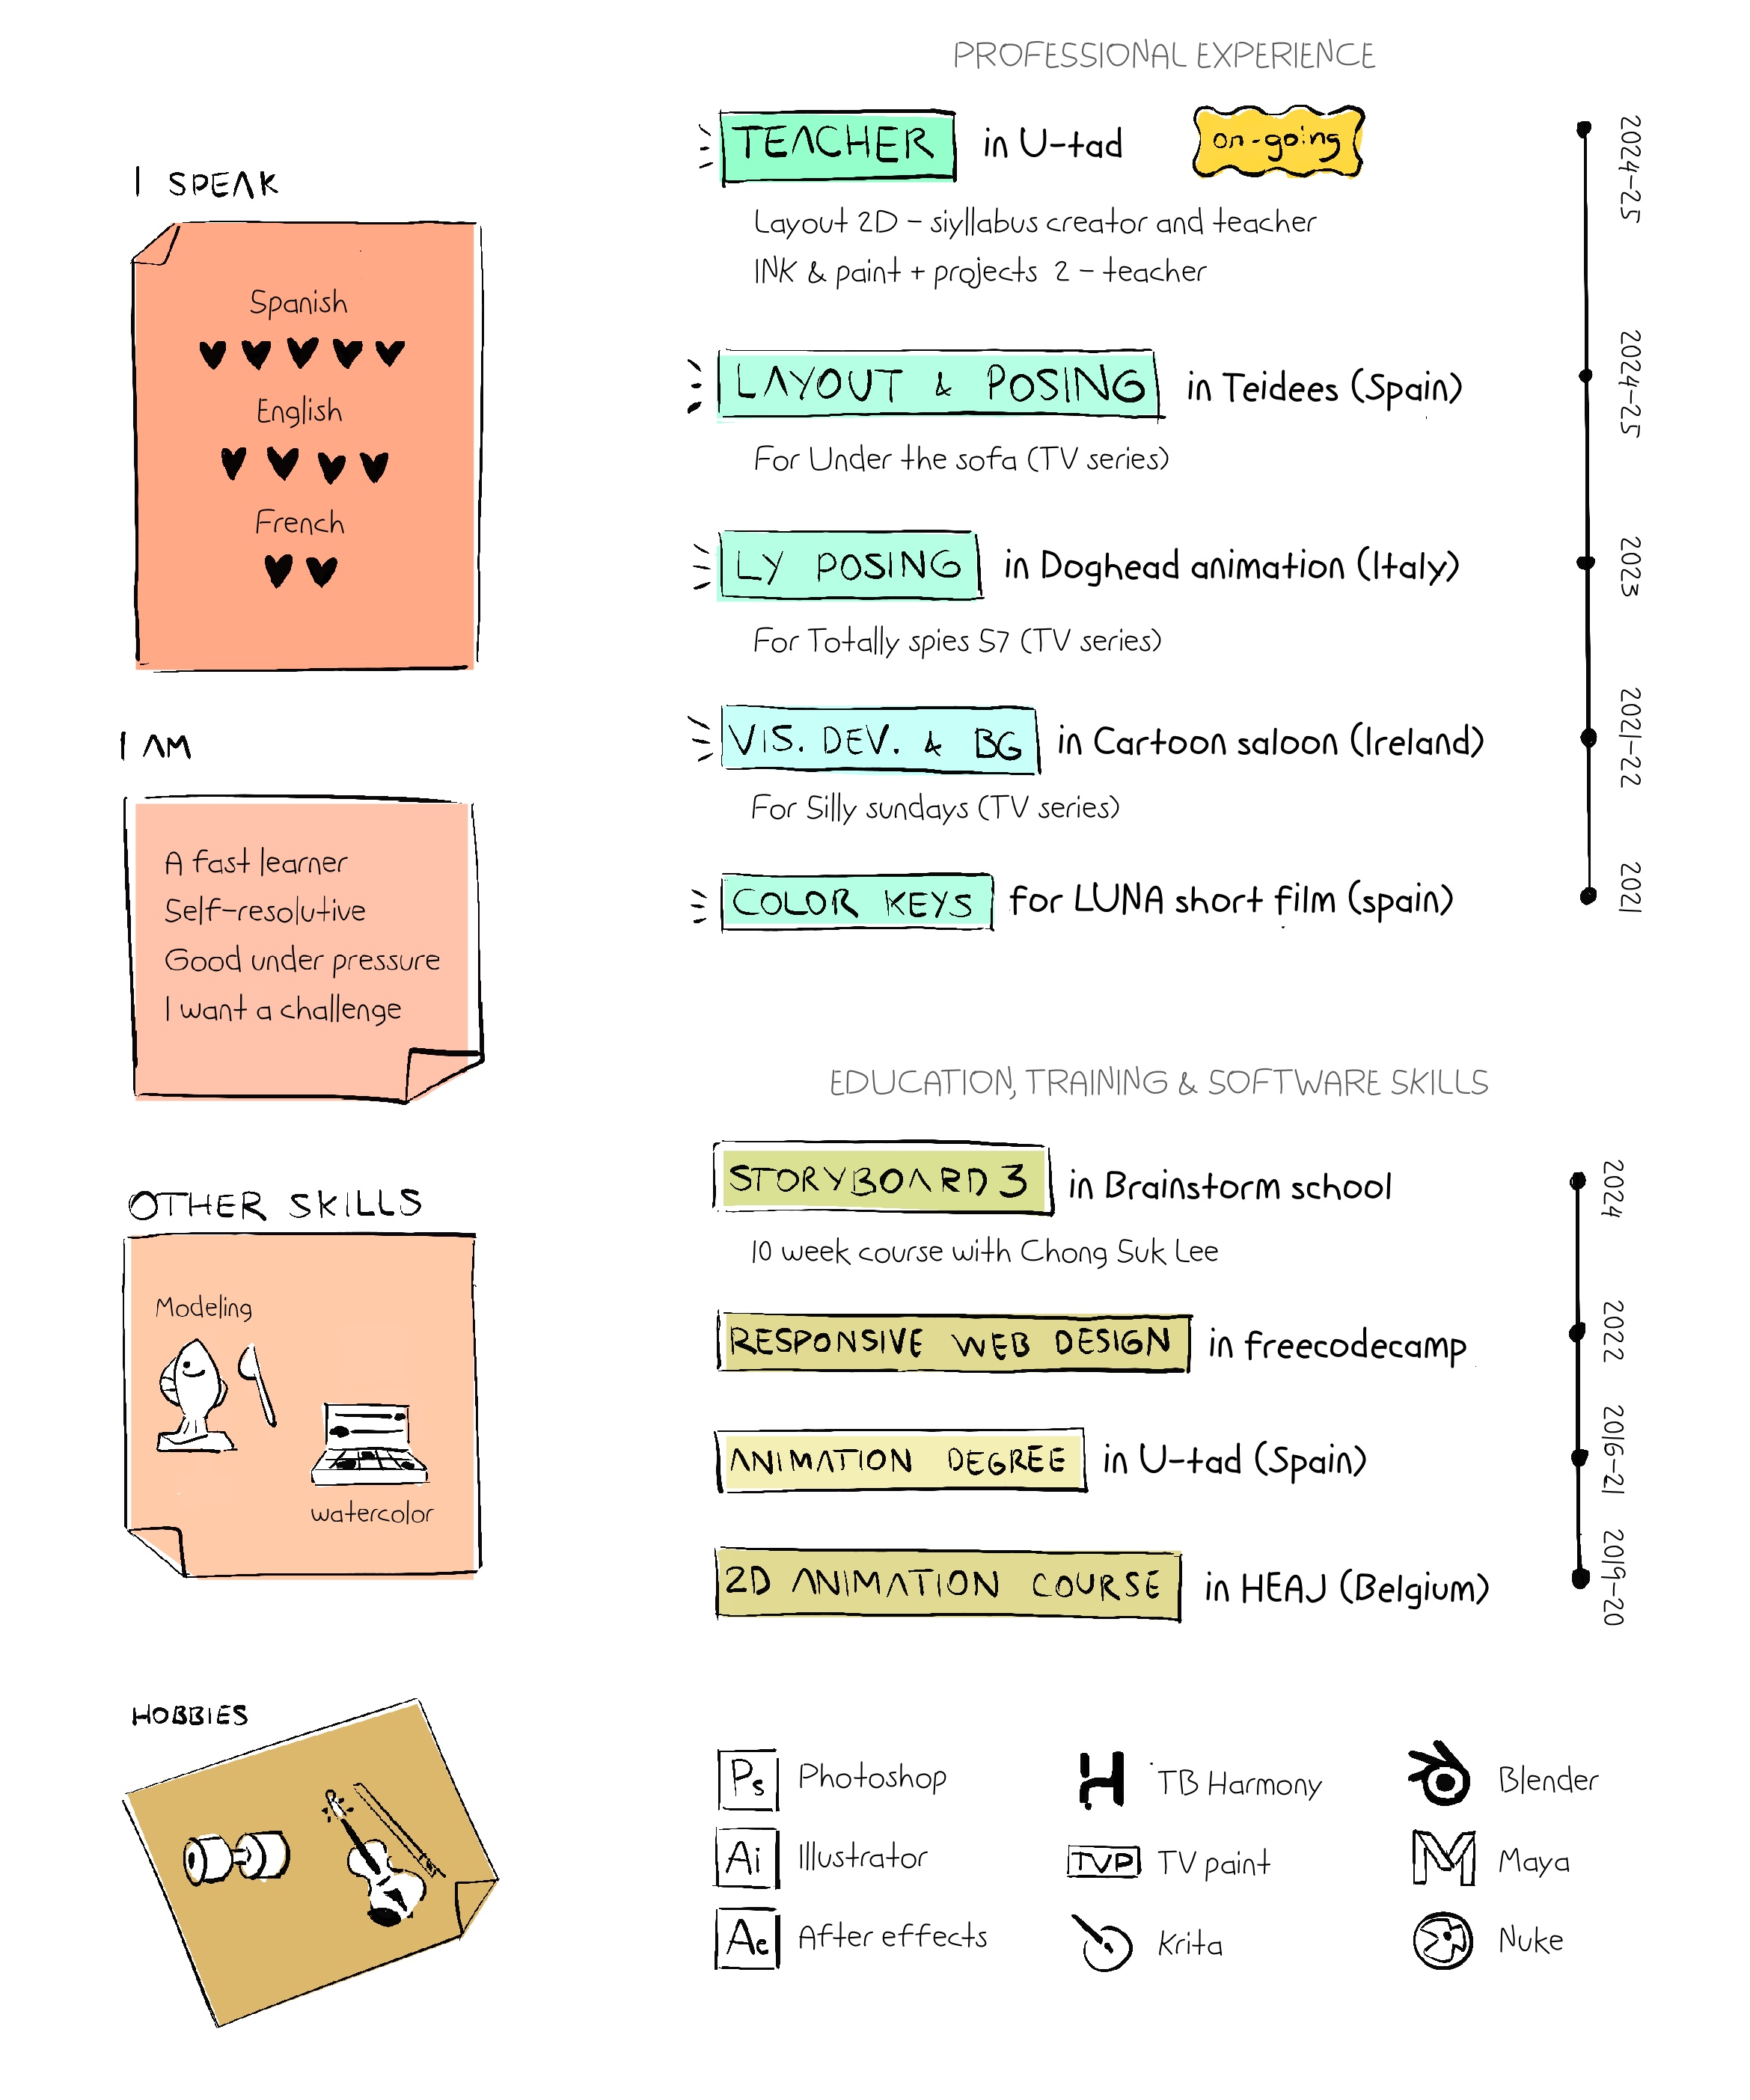 I SPEAK
Spanish
English
French
I AM
A fast learner
Self-resolutive
Good under pressure
I want a challenge
OTHER SKILLS
Modeling
watercolor
HOBBIES
PROFESSIONAL EXPERIENCE
TEACHER in U-tad on-going 2024-25
Layout 2D - siyllabus creator and teacher
INK & paint + projects 2 - teacher
LAYOUT & POSING in Teidees (Spain) 2024-25
For Under the sofa (TV series)
LY POSING in Doghead animation (Italy) 2023
For Totally spies S7 (TV series)
VIS. DEV. & BG in Cartoon saloon (Ireland) 2021-22
For Silly sundays (TV series)
COLOR KEYS for LUNA short film (spain) 2021
EDUCATION, TRAINING & SOFTWARE SKILLS
STORYBOARD 3 in Brainstorm school 2024
10 week course with Chong Suk Lee
RESPONSIVE WEB DESIGN in freecodecamp 2022
ANIMATION DEGREE in U-tad (Spain) 2016-21
2D ANIMATION COURSE in HEAJ (Belgium) 2019-20
Ps Photoshop H TB Harmony Blender
Ai Illustrator TVP TV paint M Maya
Ae After effects Krita Nuke